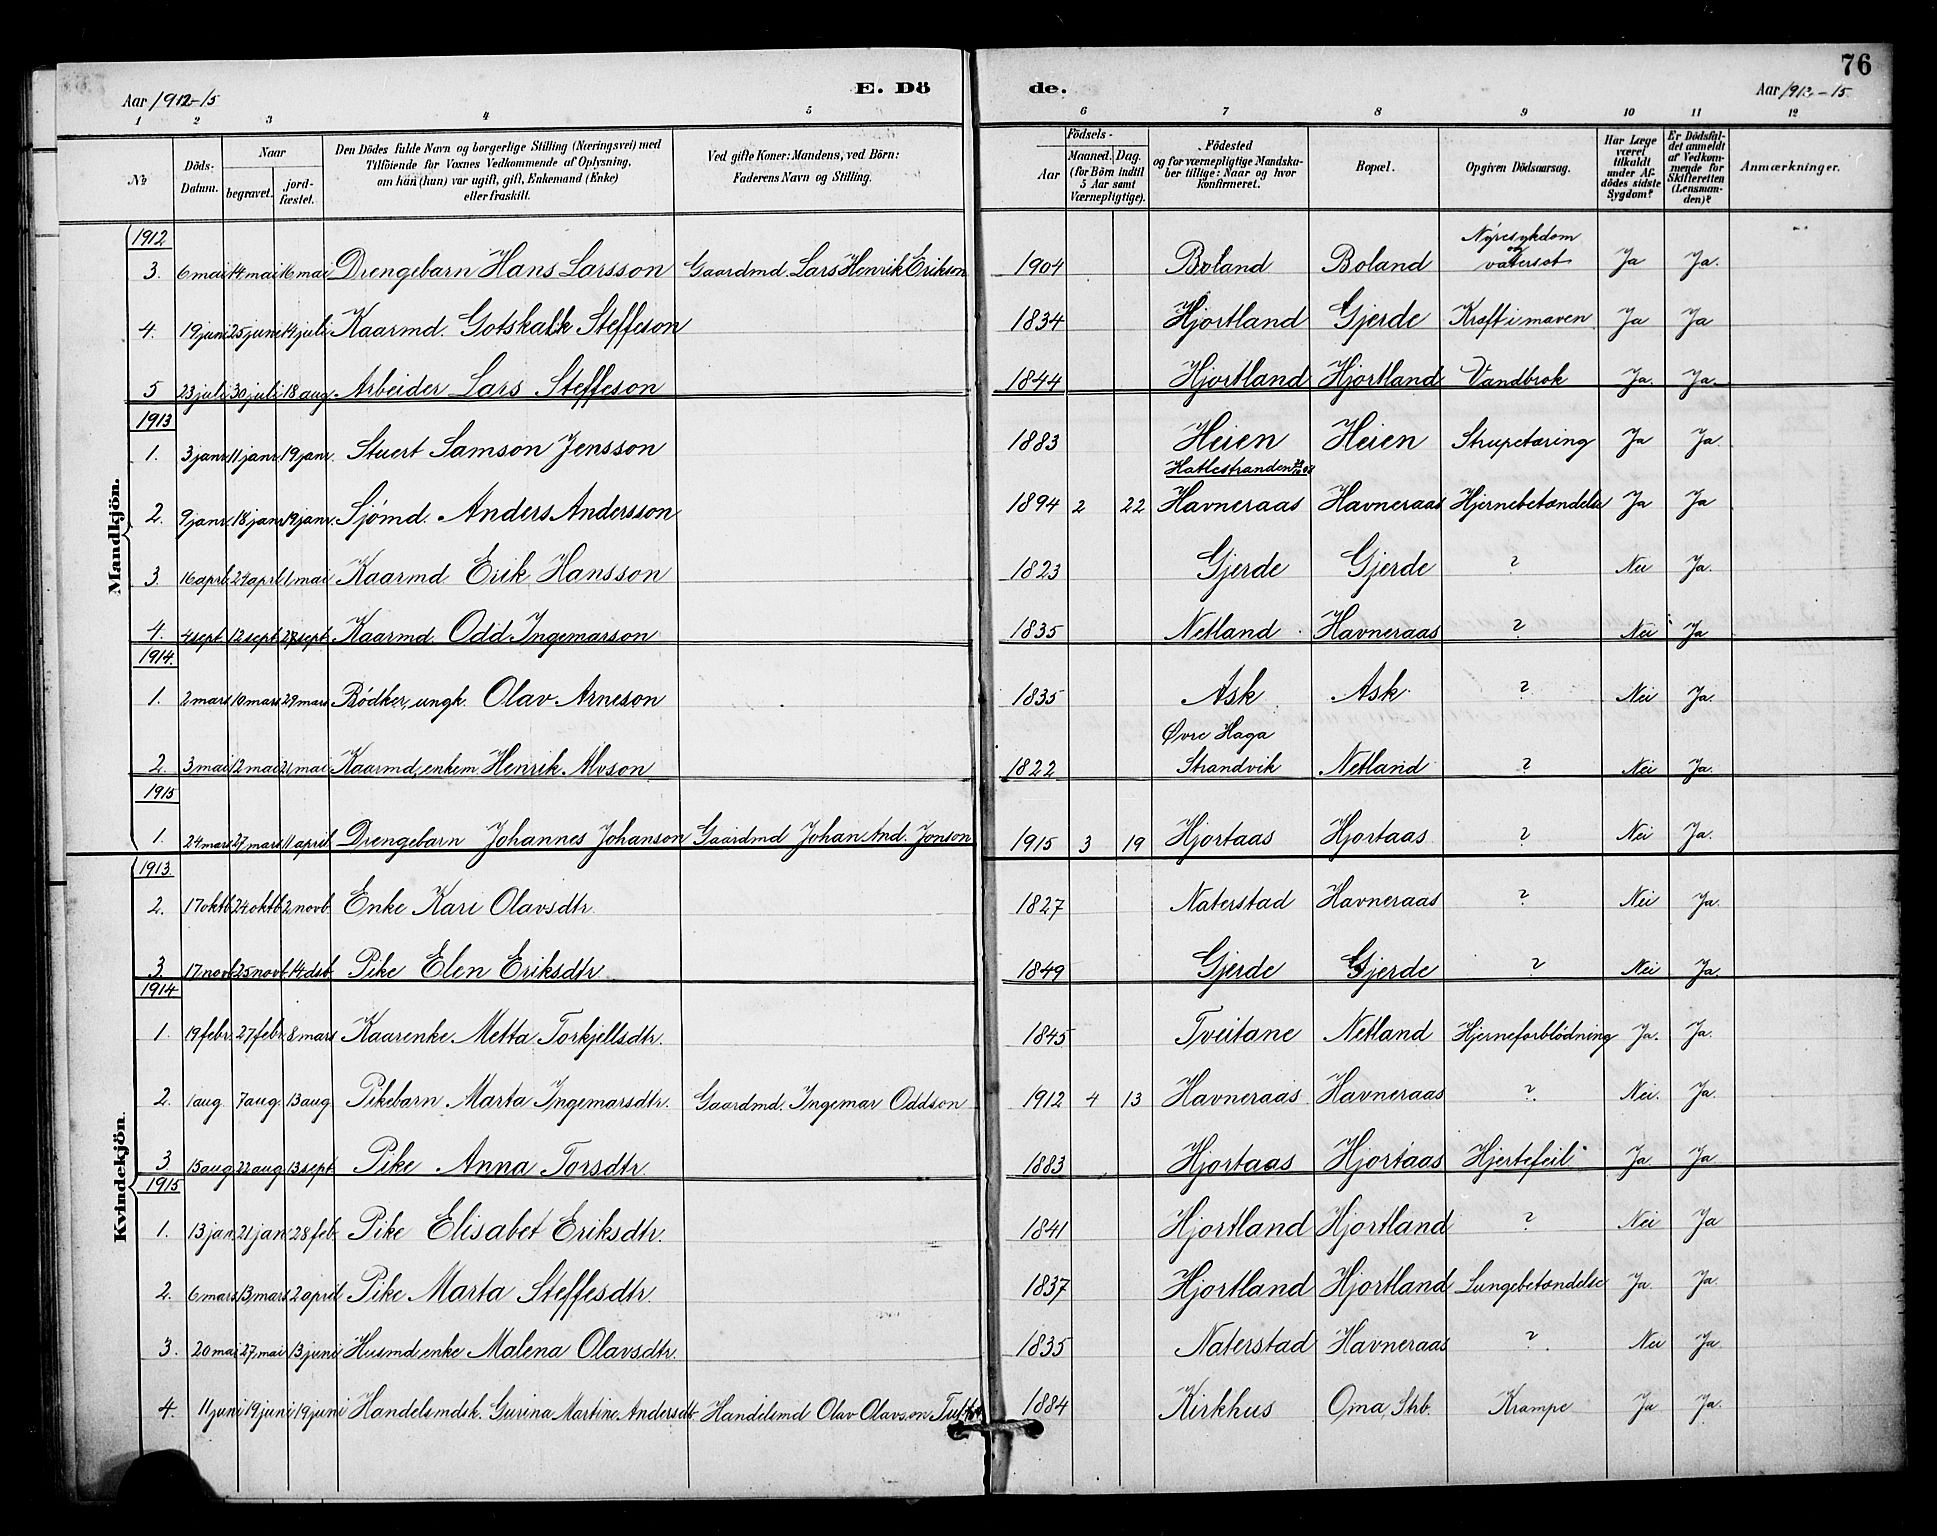 76
Aar 1912-15 E. Dö de. Aar 1912-15
1 2 3 4 5 6 7 8 9 10 11 12
No Döds-Datum. Naar begravet. jord-fæstet. Den Dödes fulde Navn og borgerlige Stilling (Næringsvei) med Tilföiende for Voxnes Vedkommende af Oplysning, om han (hun) var ugift, gift, Enkemand (Enke) eller fraskilt. Ved gifte Koner: Mandens, ved Börn: Faderens Navn og Stilling. Födsels- Aar Maaned. Dag. (for Börn indtil 5 Aar samt Værnepligtige). Födested og for værnepligtige Mandska-ber tillige: Naar og hvor konfirmeret. Bopæl. Opgiven Dödsaarsag. Har Læge været tilkaldt under Af-dödes sidste Sygdom? Er Dödsfal-det anmeldt af Vedkom-mende for Skifteretten (Lensman-den)? Anmærkninger.
Mandkjön.
1912
3. 6 mai 14 mai 16 mai Drengebarn Hans Larsson Gaardmd. Lars Henrik Erikson 1904 Boland Boland Nyresykdom og vatersot Ja Ja.
4. 19 juni 25 june 14 juli Kaarmd. Gotskalk Steffeson 1834 Hjortland Gjerde Kræft i maven Ja Ja
5 23 juli 30 juli 18 aug. Arbeider Lars Steffeson 1844 Hjortland Hjortland Vandbrok Ja. Ja.
1913
1. 3 janr. 11 janr. 19 janr. Stuert Samson Jensson 1883 Heien Heien Strupetæring Ja Ja.
2. 9 janr. 18 janr. 19 janr. Sjömd. Anders Andersson 1894 2 22 Hatlestranden Havneraas Havneraas Hjernebetændelse Ja Ja
3. 16 aprl. 24 aprl. 1 mai Kaarmd Erik Hansson 1823 Gjerde Gjerde ? Nei Ja.
4. 4 sept 12 sept 28 sept. Kaarmd. Odd Ingemarson 1835 Netland Havneraas ? Nei Ja
1914.
1. 2 mars 10 mars 29 mars Bödker, ungk. Olav Arneson 1835 Ask Ask ? Nei Ja.
2. 3 mai 12 mai 21 mai Kaarmd, enkem Henrik Alvson 1822 Øvre Haga Strandvik Netland ? Nei Ja.
1915
1. 24 mars 27 mars 11 april Drengebarn Johannes Johanson Gaardmd Johan And. Jonson 1915 3 19 Hjortaas Hjortaas ? Nei Ja.
Kvindekjön.
1913.
2. 17 oktb. 24 oktb. 2 novb. Enke Kari Olavsdtr. 1827 Naterstad Havneraas ? Nei Ja.
3. 17 novb 25 novb. 14 dsb. Pike Elen Eriksdtr. 1849 Gjerde Gjerde ? Nei Ja.
1914
1. 19 febr. 27 febr. 8 mars Kaarenke Metta Torkjellsdtr. 1845 Tveitane Netland Hjerneforblödning Ja. Ja.
2. 1 aug. 7 aug. 13 aug Pikebarn Marta Ingemarsdtr. Gaardmd. Ingemar Oddson 1912 4 13 Havneraas Havneraas ? Nei. Ja.
3 15 aug 22 aug 13 sept. Pike Anna Torsdtr. 1883 Hjortaas Hjortaas Hjertefeil Ja Ja
1915
1. 13 jan 21 jan 28 feb. Pike Elisabet Eriksdtr. 1841 Hjortland Hjortland ? Nei Ja
2. 6 mars 13 mars 2 april Pike Marta Steffesdtr. 1837 Hjortland Hjortland Lungebetændelse Ja. Ja.
3. 20 mai 27 mai 13 juni Husmd enke Malena Olavsdtr. 1835 Naterstad Havneraas ? Nei Ja.
4. 11 juni 19 juni 19 juni Handelsmdsk. Gurina Martine Andersdt. Handelsmd Olav Olavson 1884 Kirkhus Oma, Strb. Krampe Ja Ja